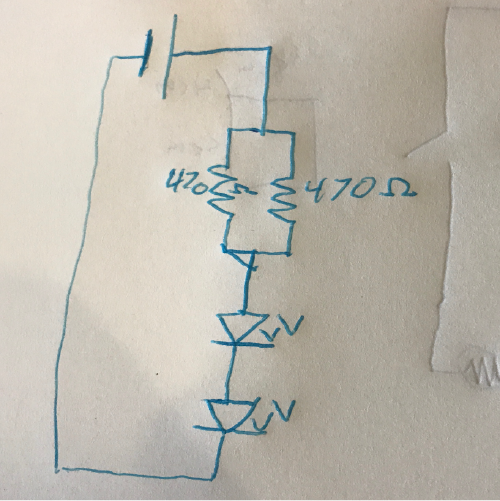 470 Ω
470Ω